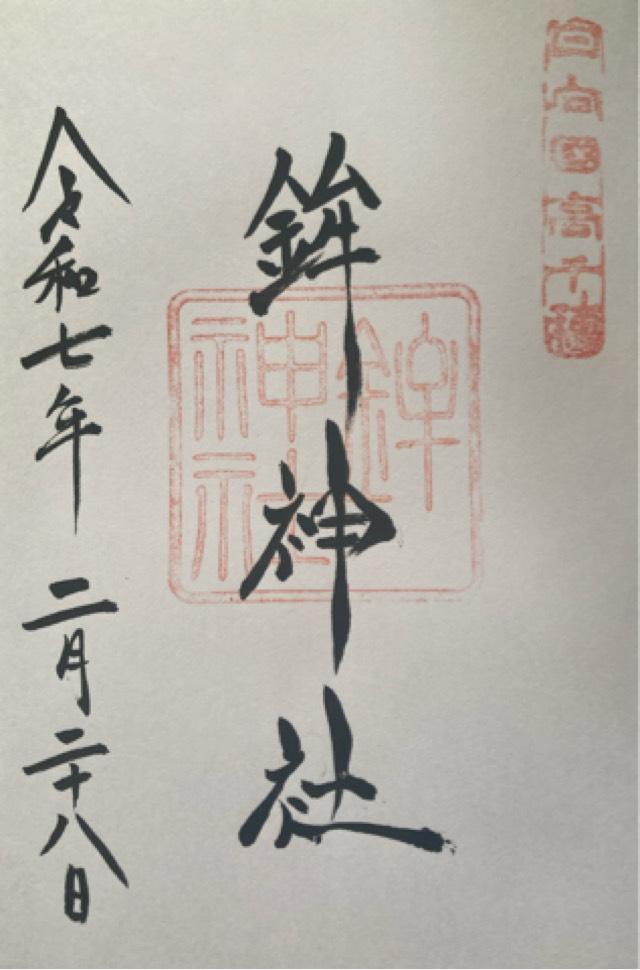 日向国高千穂
鉾神社
鉾神社
令和七年 二月二十八日